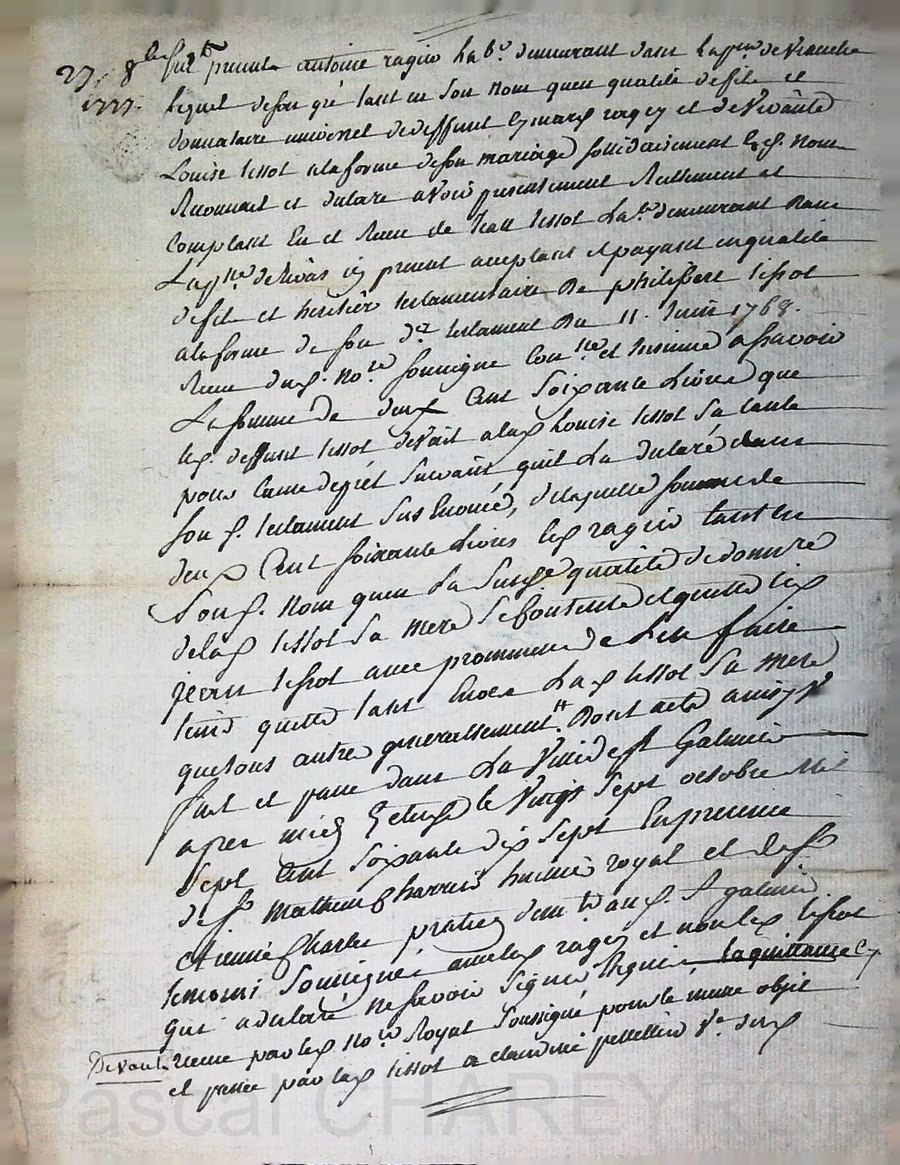 27 8bre fut present antoine ragin lab.r demeurant dans la p.sse de
1777.
lequel de son gré tant en son nom quen qualité de fils et
donnataire universel de deffunt et de vivante
Louise tissot a la forme de son mariage sollidairement esd. noms
Reconnait et declare avoir presentement Reellement et
comptant Eu et Receu de Jean tissot lab.r demeurant dans
La p.sse de icy present acceptant et payant en qualité
de fils et heritier testamentaire de philibert tissot
a la forme de son d.er testament du 11. Juin 1768.
Receu dud. No.re soussigné et insinué a scavoir
La somme de deux Cent Soixante Livres que
led. deffunt tissot devait a lad. Louise tissot sa tante
pour suivant quil La declaré dans
son d. testament sus Enoncé, de laquelle somme de
deux Cent soixante Livres led. ragin tant en
Son d. Nom quen La susd. qualité de donn.re
de lad. tissot sa mere se Contente et quitte led.
jean tissot avec promesse de Len faire
tenir quitte tant Envers Lad. tissot sa mere
que tous autres generallement. Dont acte
fait et passé dans La Ville de St Galmier
apres midy le Vingt Sept octobre Mil
Sept Cent Soixante dix Sept En presence
de s.r Mathieu Charrein huissier royal et de s.r
Etienne Charles praticien dem.t aud. St galmier
temoins soussignés avec led. ragin et non led. tissot
qui a declaré ne scavoir signer la quittance cy
Devant receue par led. No.re Royal soussigné pour le meme objet
et passée par lad. tissot a claudine pellissier V.e dud.
Pascal CHAREYRON